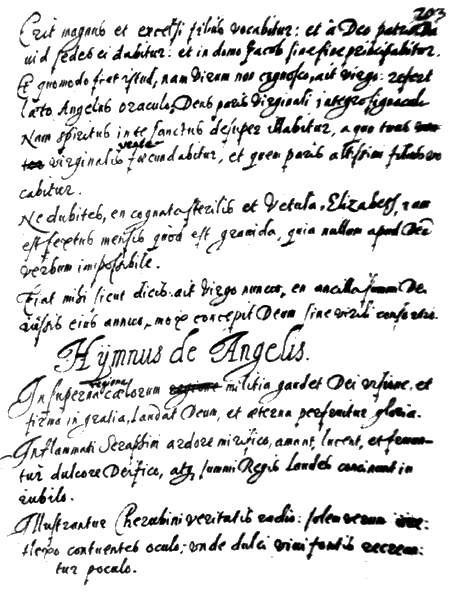 203
Erit magnus et excelsi filius vocabitur: et à Deo patris Da
uid sedes ei dabitur: et in domo Jacob sine fine principabitur.
Et quomodo fiet istud, nam virum non cognosco, ait virgo: refert
lato Angelus oraculo, Deus paris Virginali integro signaculo
Nam spiritus in te sanctus desuper illabitur, a quo tuus
venter virginalis fœcundabitur, et quem paris altissimi filius vo
cabitur.
Ne dubites, en cognata sterilis et Vetula, Elizabeth, nam
est sextus mensis quòd est gravida, quia nullum apud Deũ
verbum impossibile.
Fiat mihi sicut dicis: ait Virgo nuncio, en ancilla summi De
iussis eius annuo, mox concepit Deum sine virili consortio.
Hymnus de Angelis.
In superna cælorum regione militia gaudet Dei visione, et
firmo in gratia, laudat Deum, et æterna perfruitur gloria.
Inflammati Seraphini ardore mirifico, amant, lucent, et fruun-
tur dulcore Deifico, atq summi Regis laudes concinunt in
iubilo.
Illustrantur Cherubini veritatis radio: solem verum irre:
flexo contuentes oculo; vnde dulci vivi fontis recrean:
tur poculo.